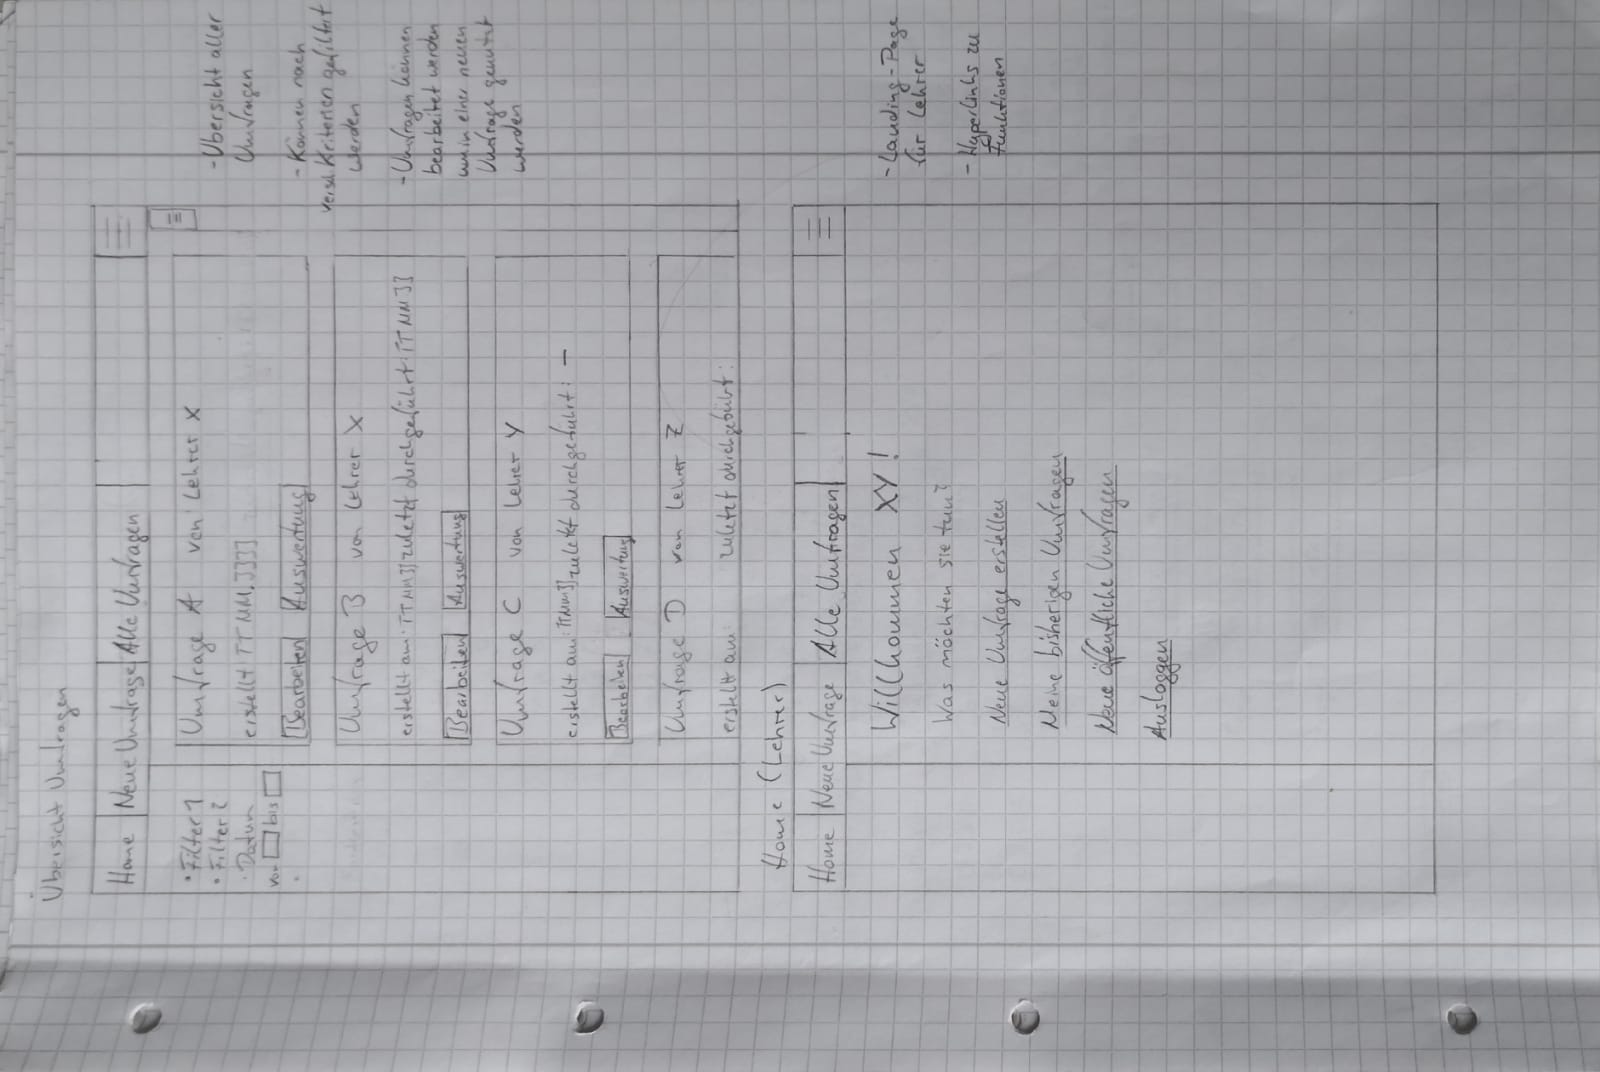 Übersicht Umfragen
Home Neue Umfrage Alle Umfragen
• Filter 1
• Filter 2
• Datum
von bis
Umfrage A von Lehrer X
erstellt TT.MM.JJJJ
Bearbeiten Auswertung
Umfrage B von Lehrer X
erstellt am: TT MM JJ zuletzt durchgeführt: TT MM JJ
Bearbeiten Auswertung
Umfrage C von Lehrer Y
erstellt am: TT MM JJ zuletzt durchgeführt: –
Bearbeiten Auswertung
Umfrage D von Lehrer Z
erstellt am: zuletzt durchgeführt:
- Übersicht aller
Umfragen
- Können nach
versch. Kriterien gefiltert
werden
- Umfragen können
bearbeitet werden
um in einer neuen
Umfrage genutzt
werden
Home (Lehrer)
Home Neue Umfrage Alle Umfragen
Willkommen XY!
Was möchten sie tun?
Neue Umfrage erstellen
Meine bisherigen Umfragen
öffentliche Umfragen
Ausloggen
- Landing-Page
für Lehrer
- Hyperlinks zu
Funktionen